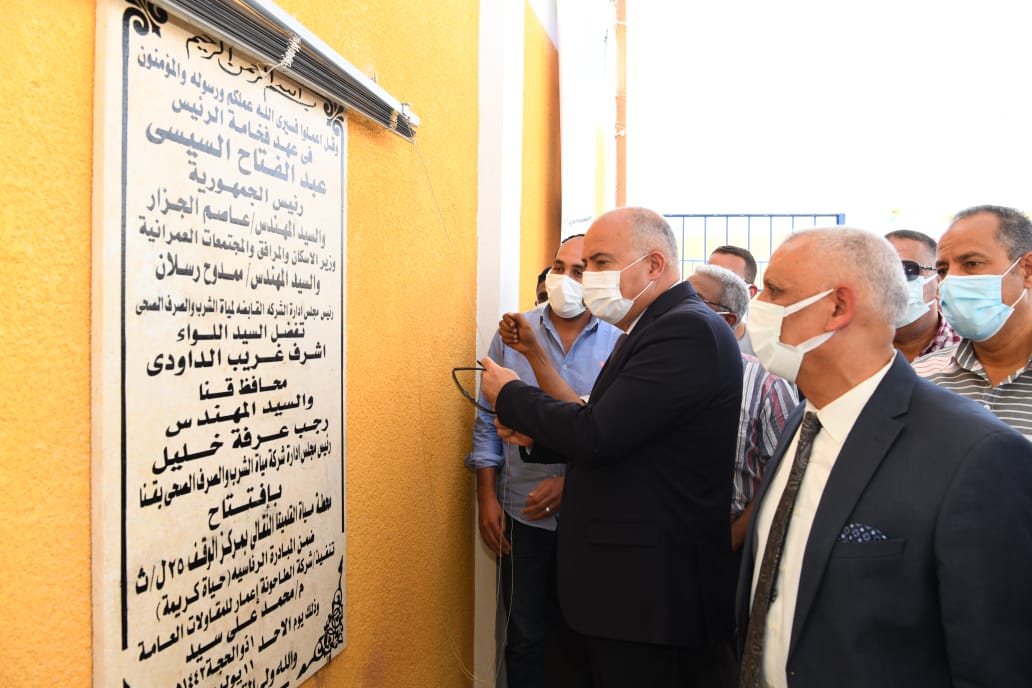 بسم الله الرحمن الرحيم
وقل اعملوا فسيرى الله عملكم ورسوله والمؤمنون
فى عهد فخامة الرئيس
عبد الفتاح السيسى
رئيس الجمهورية
والسيد المهندس/عاصم الجزار
وزير الاسكان والمرافق والمجتمعات العمرانية
والسيد المهندس/ ممدوح رسلان
رئيس مجلس ادارة الشركه القابضه لمياة الشرب والصرف الصحى
تفضل السيد اللواء
اشرف غريب الداودى
محافظ قنا
والسيد المهندس
رجب عرفة خليل
رئيس مجلس ادارة شركة مياة الشرب والصرف الصحى بقنا
بإفتتاح
محطة مياة القلمينا النقالى بمركز الوقف ٢٥ل/ث
ضمن المبادرة الرئاسيه (حياة كريمة)
تنفيذ/شركة الطاحونة إعمار للمقاولات العامة
م/محمد على سيد
وذلك يوم الاحد ١ ذوالحجة ١٤٤٢
١١ يوليو
والله ولى